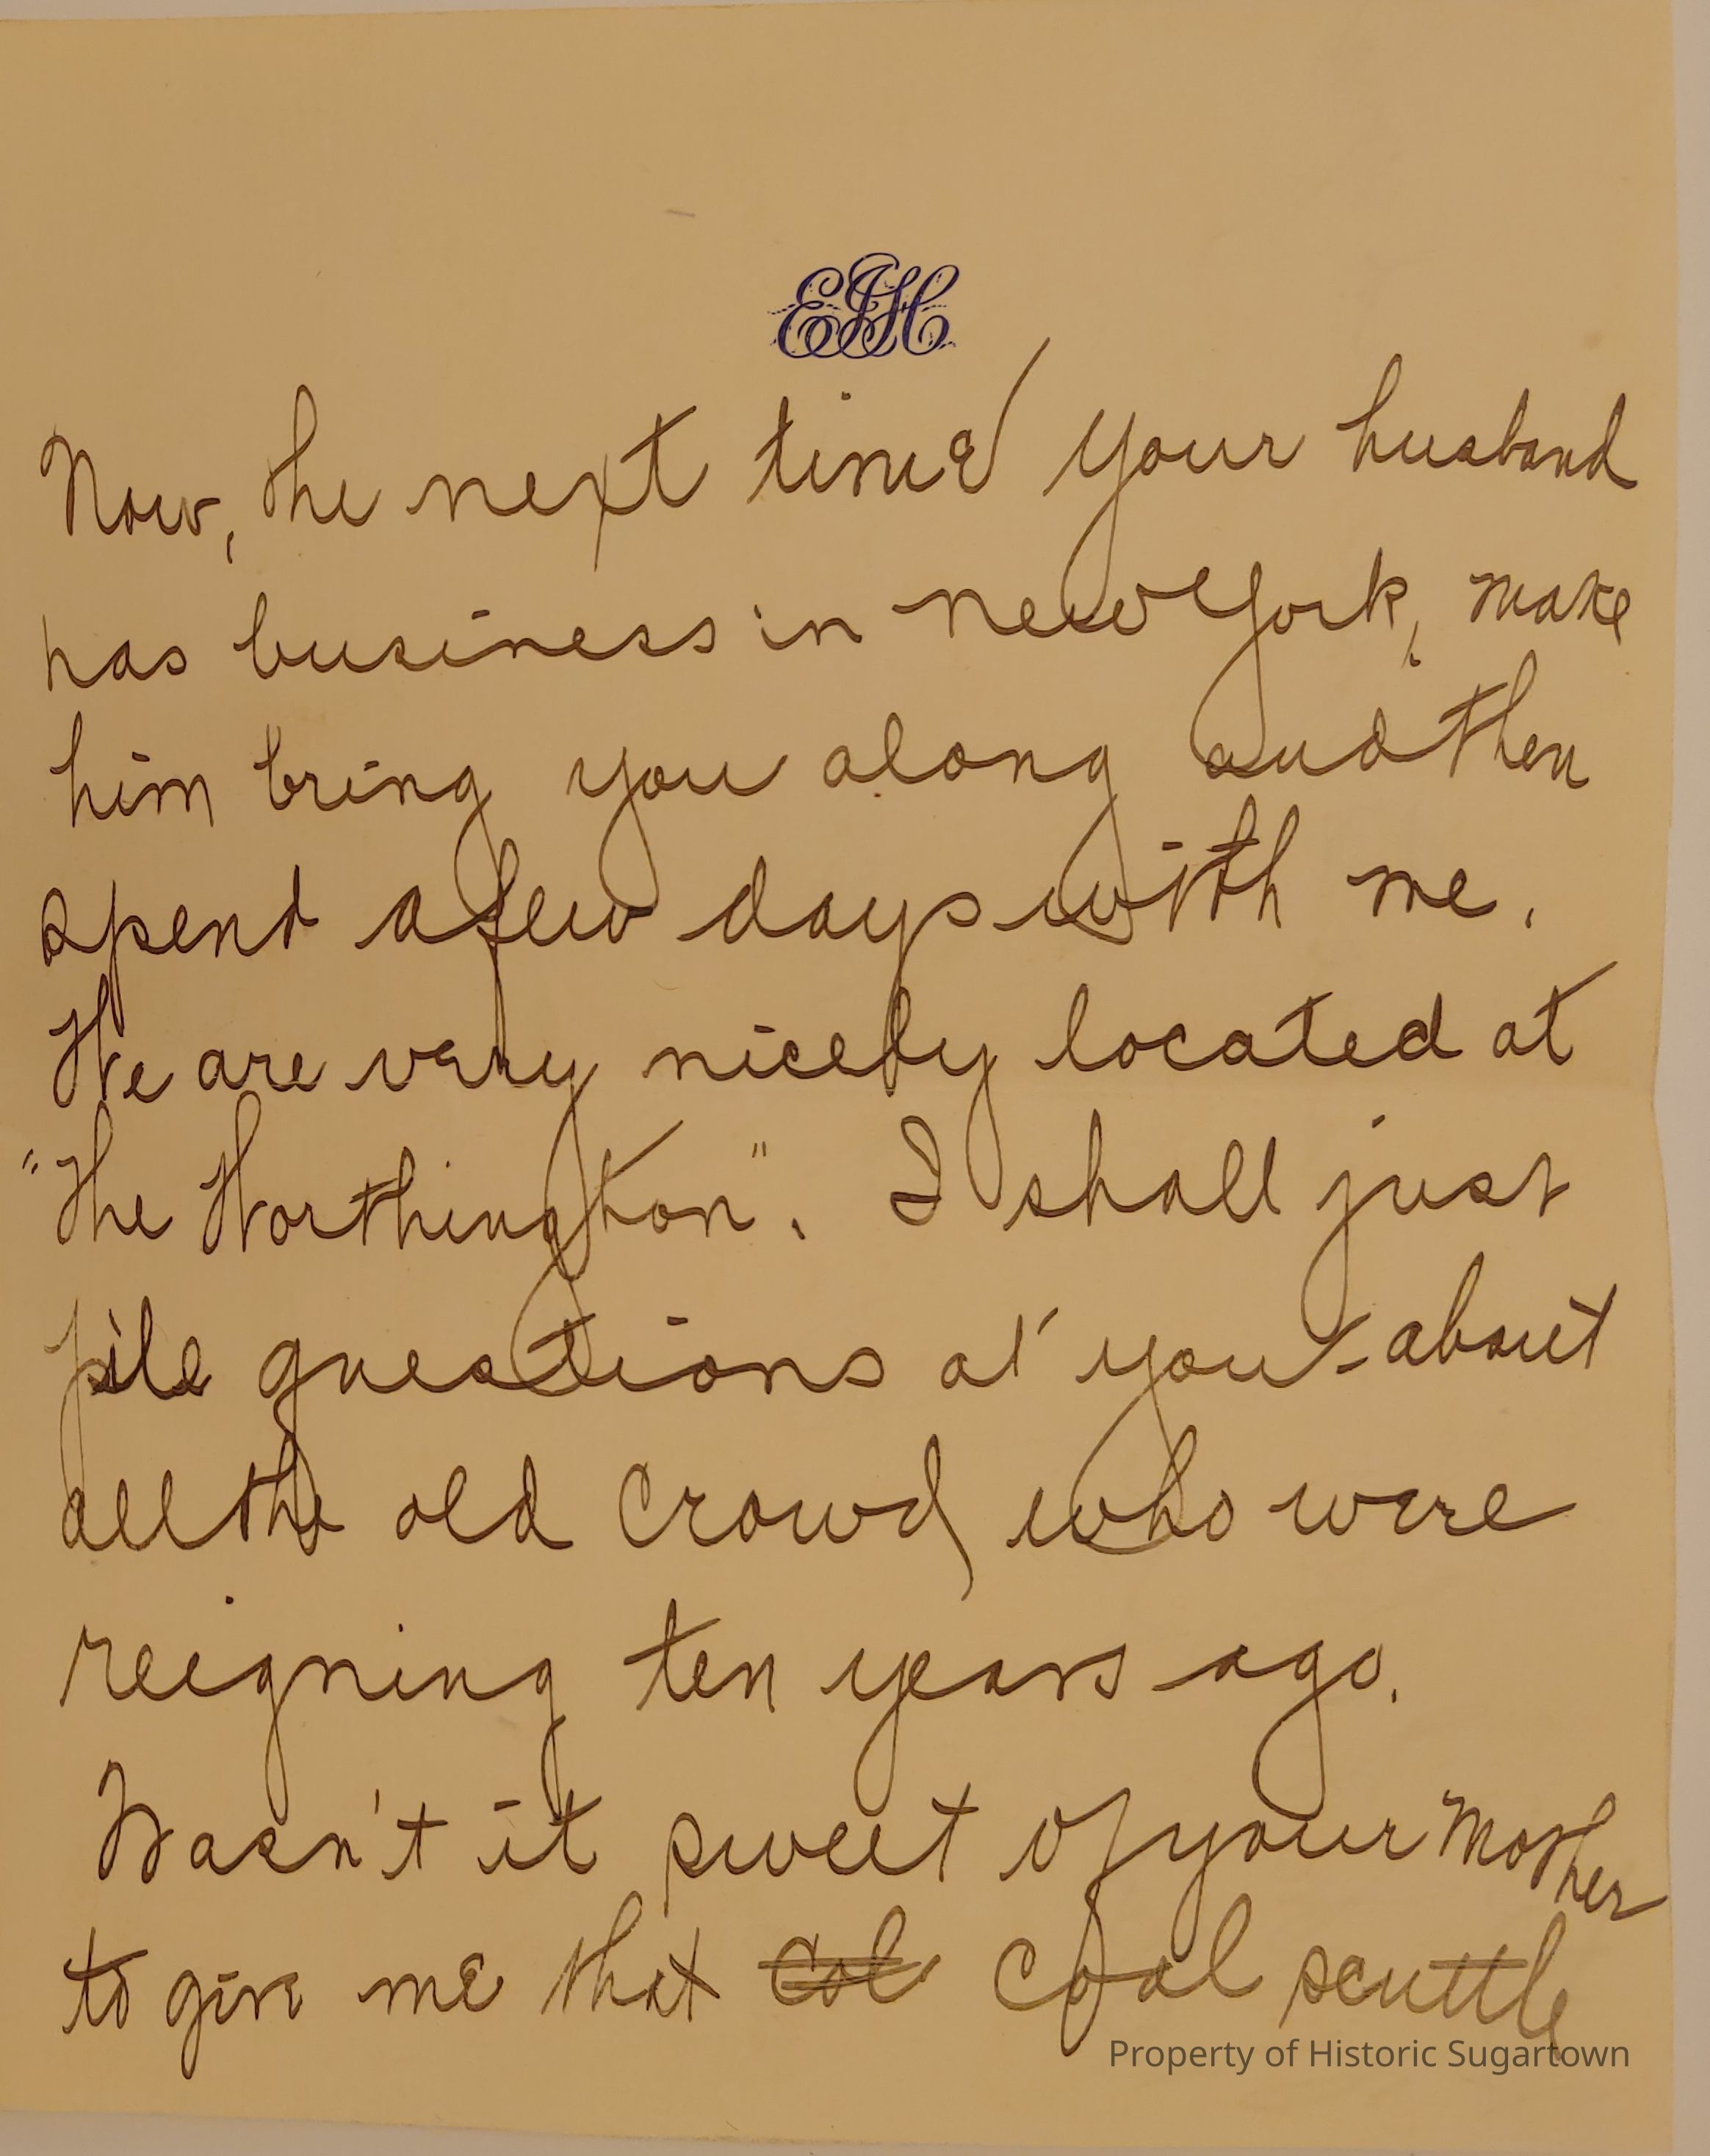 EJH
Now, the next time your husband
has business in New York, make
him bring you along and then
spend a few days with me.
We are very nicely located at
"The Worthington". I shall just
pile questions at you - about
all the old crowd who were
reigning ten years ago.
Wasn't it sweet of your Mother
to give me that ~~Col~~ Coal scuttle
Property of Historic Sugartown